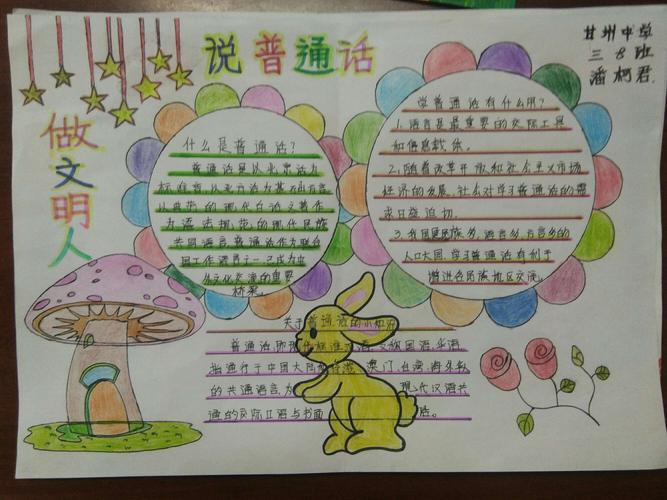 说普通话
甘州中学
三8班
潘柯君
做文明人
什么是普通话？
普通话是以北京话为
标准音，以北方话为基础方言
以典范的现代白话文著作
为语法规范的现代民族
共同语言，普通话作为联合
国工作语言之一已成为中
外文化交流的重要
桥梁。
学普通话有什么用？
1.语言是最重要的交际工具
和信息载体。
2.随着改革开放和社会主义市场
经济的发展，社会对学习普通话的需
求日益迫切。
3.我国是民族多，语言多，方言多的
人口大国，学习普通话有利于
增进各民族地区交流。
关于普通话的小知识
普通话即现代标准汉语，又称国语，华语
指通行于中国大陆 澳门，台湾，海外华
的共通语言，为 现代汉语共
通的交际口语与书面 语。